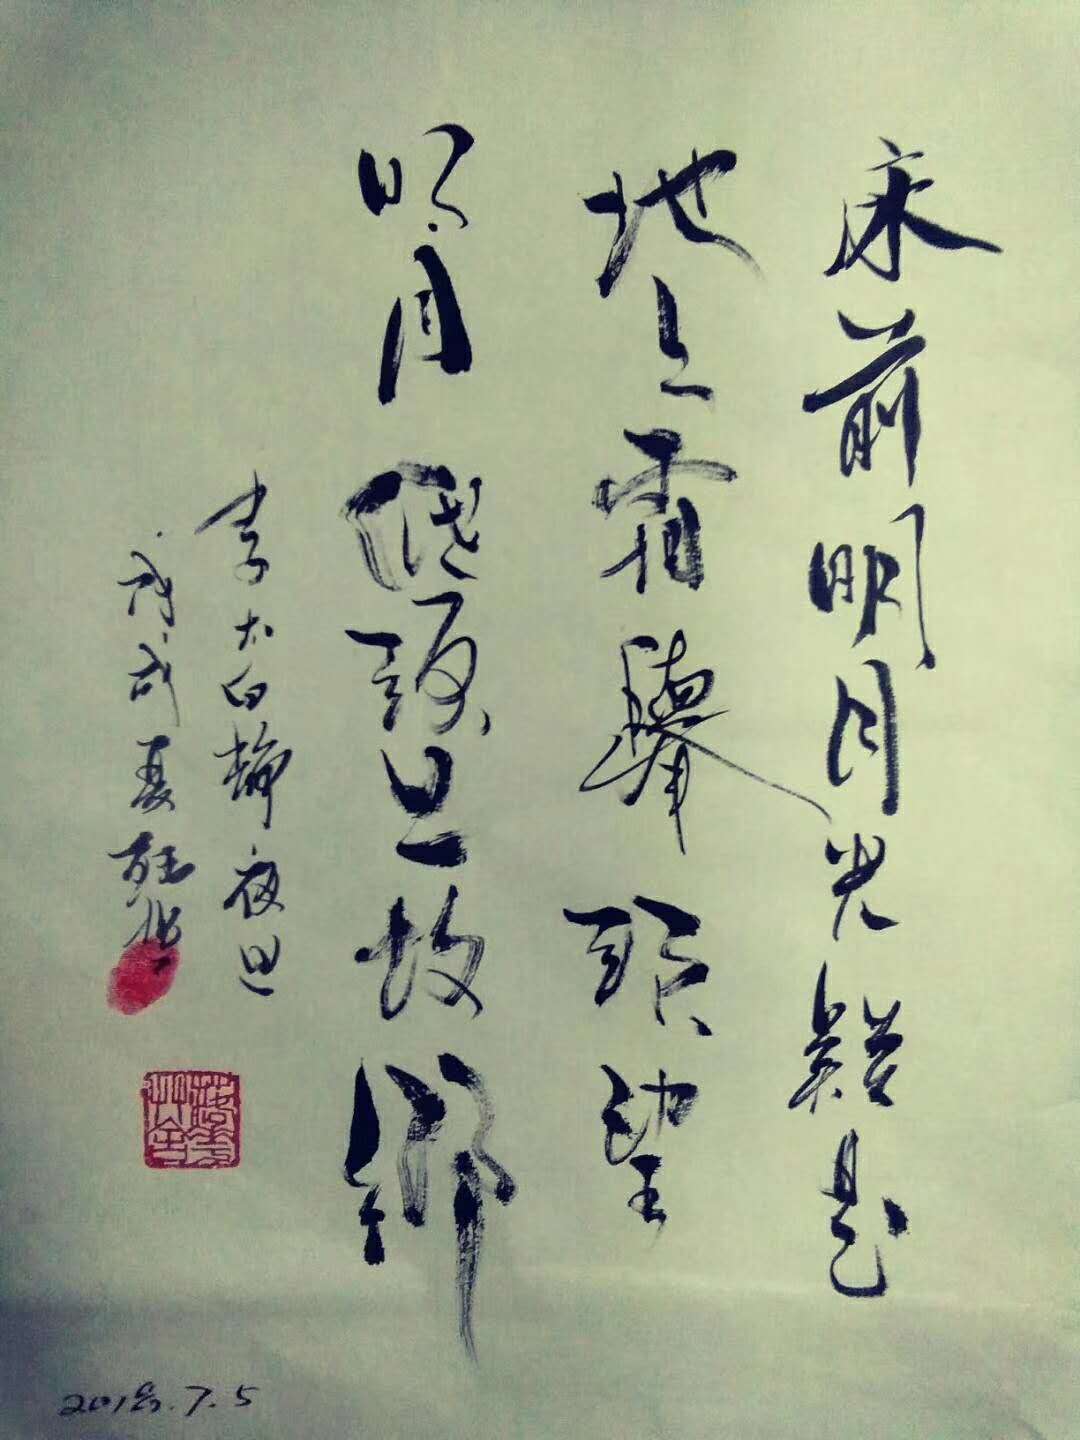 床前明月光疑是
地上霜舉頭望
明月低頭思故鄉
李太白靜夜思
戊戌夏
2018.7.5